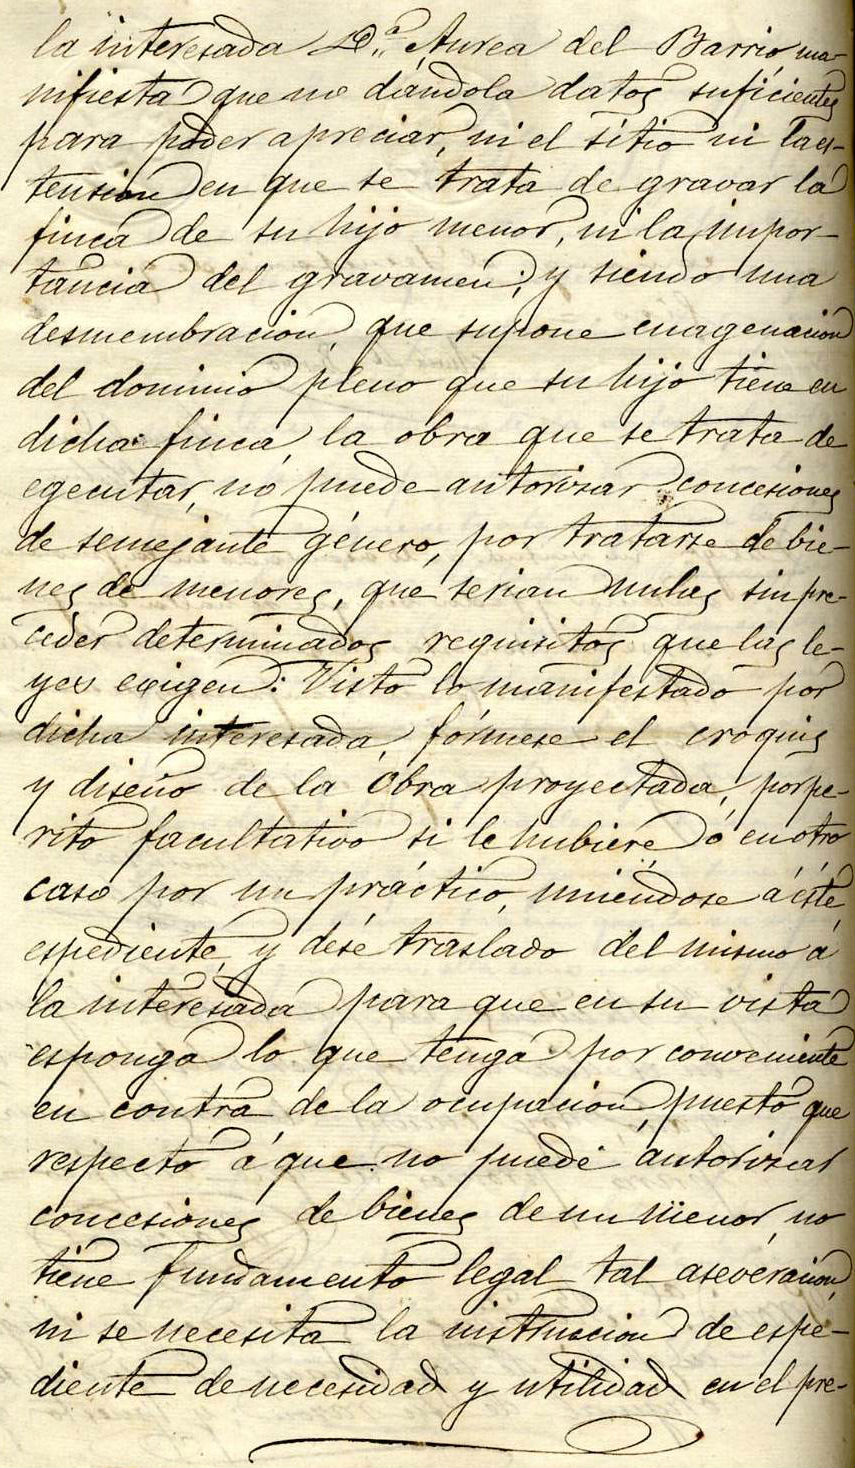 la interesada D.ª Aurea del Barrio ma-
nifiesta que no dándola datos suficientes
para poder apreciar, ni el sitio ni la es-
tension en que se trata de gravar la
finca de su hijo menor, ni la impor-
tancia del gravamen; y siendo una
desmembracion, que supone enagenacion
del dominio pleno que su hijo tiene en
dicha finca, la obra que se trata de
egecutar, no puede autorizar concesiones
de semejante género, por tratarse de bie-
nes de menores, que serian nulas sin pre-
ceder determinados requisitos que las le-
yes exigen: Visto lo manifestado por
dicha interesada, fórmese el croquis
y diseño de la obra proyectada, por pe-
rito facultativo si le hubiere ó en otro
caso por un práctico, uniéndose á éste
espediente, y dése traslado del mismo á
la interesada para que en su vista
esponga lo que tenga por conveniente
en contra de la ocupacion, puesto que
respecto á que no puede autorizar
concesiones de bienes de un menor, no
tiene fundamento legal tal aseveracion,
ni se necesita la instruccion de espe-
diente de necesidad y utilidad en el pre-